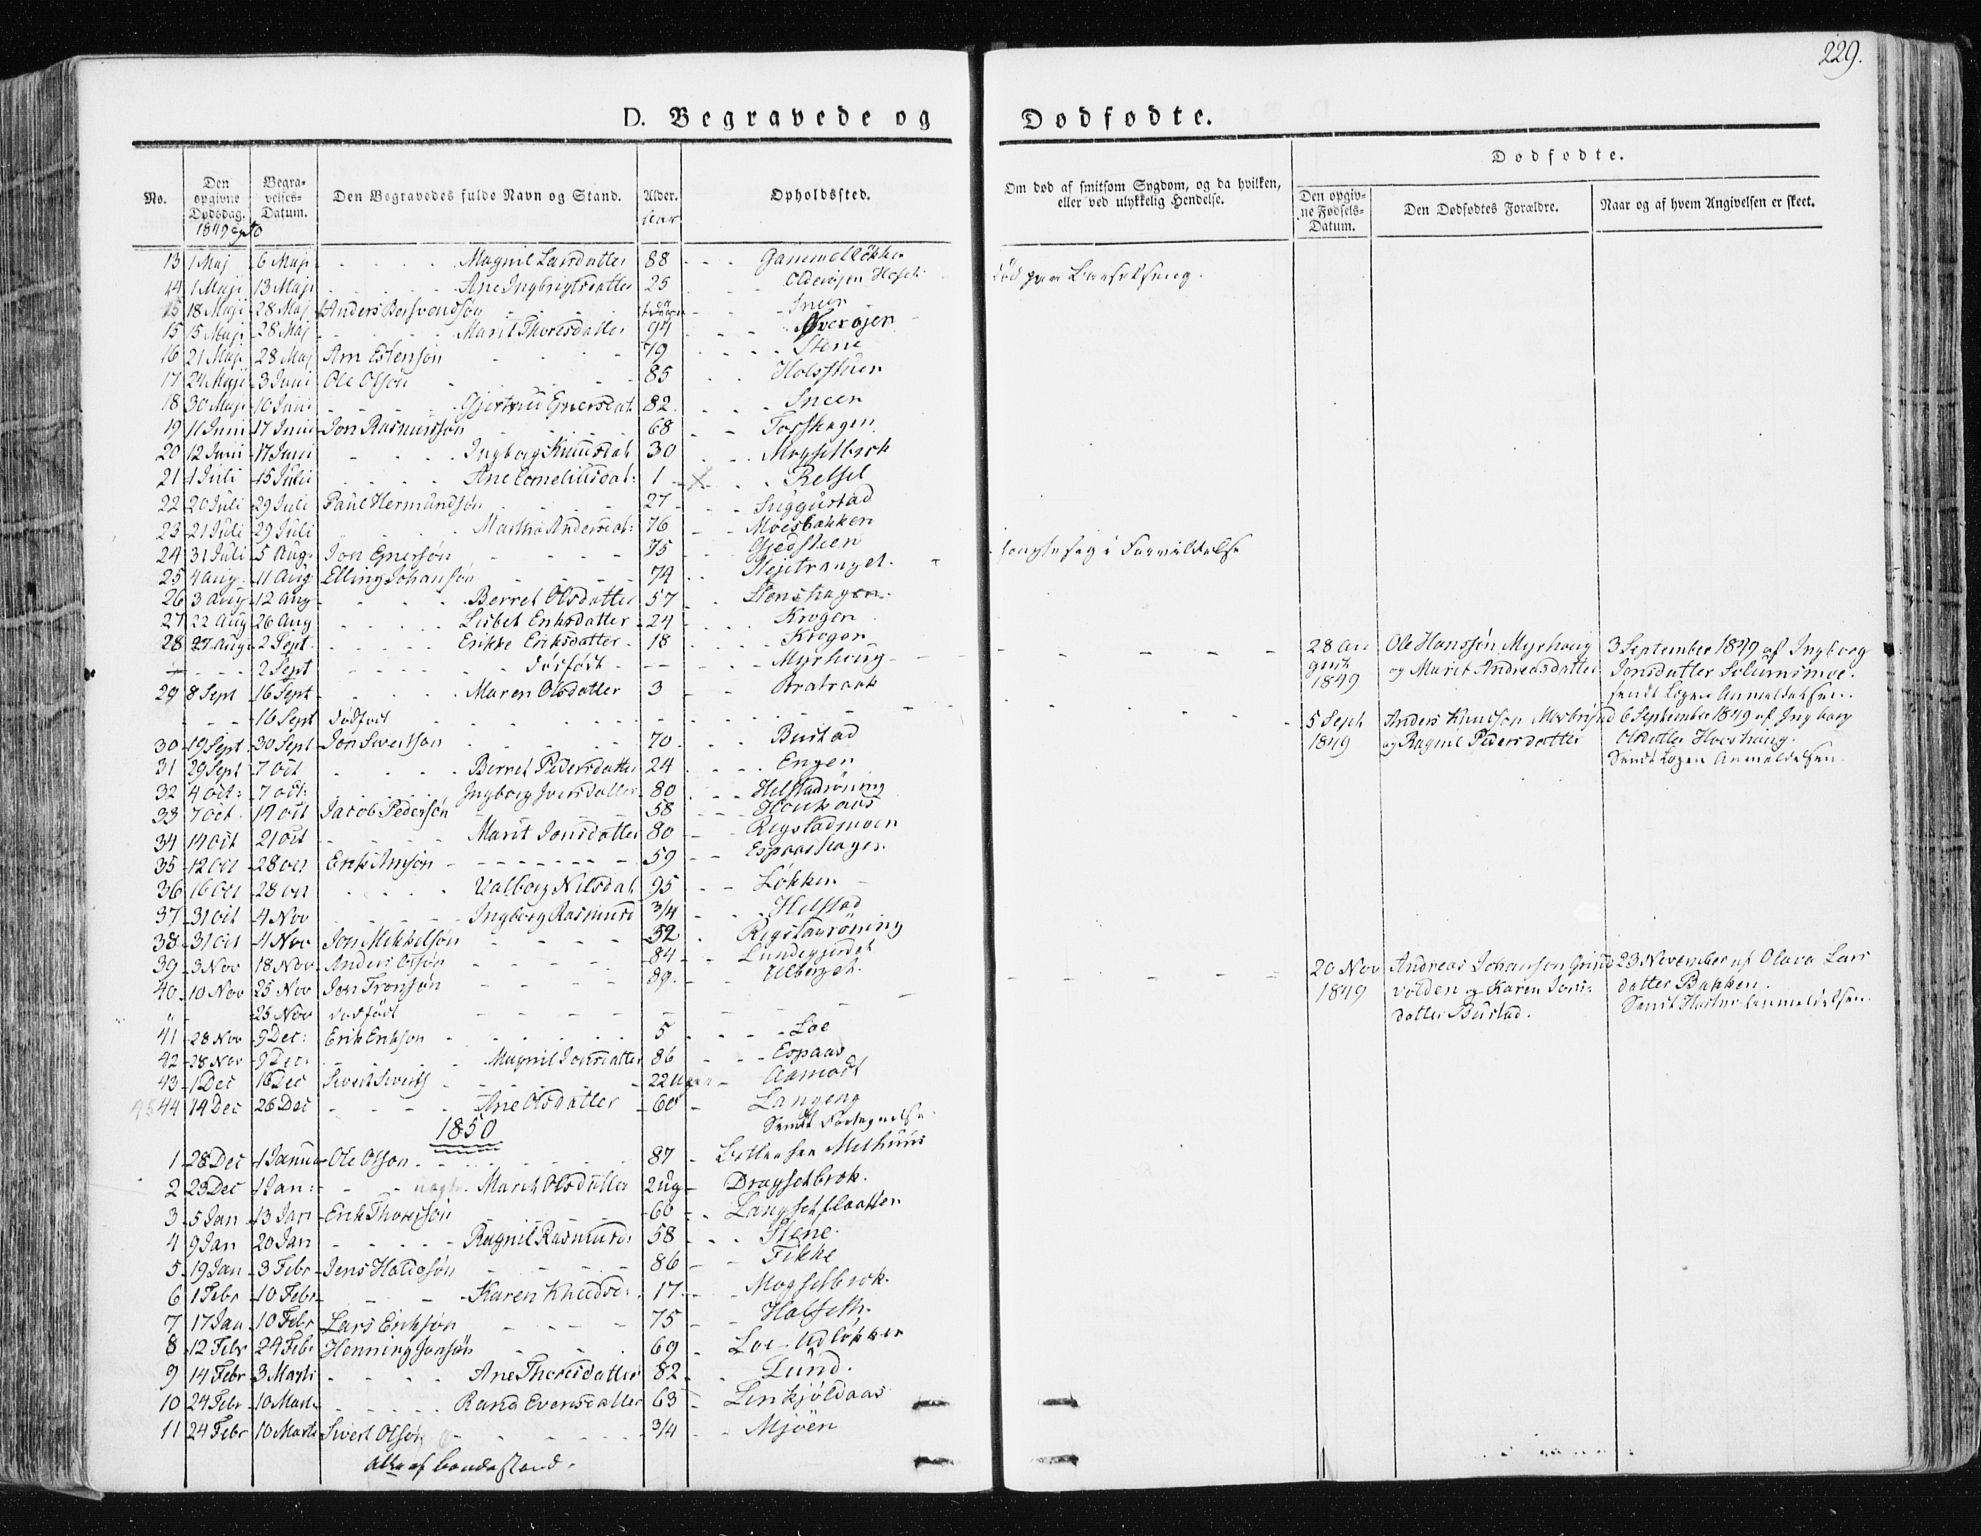 229.
D. Begravede og Dodfodte.
No.
Den opgivne Dødsdag.
Begravelses-Datum.
Den Begravedes fulde Navn og Stand.
Alder.
Opholdssted.
Om død af smitsom Sygdom, og da hvilken, eller ved ulykkelig Hendelse.
Dodfodte.
Den opgivne Fødsels-Datum.
Den Dødfødtes Forældre.
Naar og af hvem Angivelsen er skeet.
1849
13 1 Maj 6 Maj Magnil Larsdatter 88 Gammelløkken
14 1 Maji 13 Maji Ane Ingbrigtsdatter 25 død paa Barselseng.
15 18 Maji 28 Maj Anders Sneen
15 5 Maji 28 Maj Marit Thoresdatter 94
16 21 Maj 28 Maj Arn Estensøn 79 Stene
17 24 Maji 3 Juni Ole Olsøn 85 Holsteen
18 30 Maji 10 Juni Gjertrud 82 Sneen
19 11 Juni 17 Juni Jon Rasmussøn 68 Torshagen
20 12 Juni 17 Juni Ingborg Knudsdat 30 Mogsetbrok
21 1 Juli 15 Julii Ane Corneliusdat: 1 Retsel
22 20 Juli 29 Juli Paul Hermundsøn 27 Siggurstad
23 21 Juli 29 Juli Martha Andersdat: 76 Moesbakken
24 31 Juli 5 Aug: Jon Enersøn 75 Gjedsteen hængte sig i Forvildelse
25 4 Aug 11 Aug Elling Johansøn 74
26 3 Aug 12 Aug Berret Olsdatter 57 Stenshagen
27 22 Aug 26 Aug Lisbet Eriksdatter 24 Krogen
28 27 Aug 2 Sept Erikke Eriksdatter 18 Krogen
2 Sept dødfødt Myrhaug
28 August 1849
Ole Hanssøn Myrhaug og Marit Andreasdatter
3 September 1849 af Ingborg Jonsdatter Solumsmoe. sendt Anmeldelsen.
29 8 Sept 16 Sept Maren Olsdatter 3 Bratraak
16 Sept dødfødt
5 Sept 1849
Anders Knudsøn og Ragnil Pedersdatter
6 September 1849 af Ingborg Olsdatter Hoeshaug. Sendt Anmeldelsen.
30 19 Sept 30 Sept Jon Sivertsøn 70 Bustad
31 29 Sept 7 Oct Berret Pedersdatter 24 Engen
32 4 Oct: 7 Oct: Ingborg Iversdatter 80 Helstadrøning
33 7 Oct 14 Oct Jacob Pedersøn 58
34 14 Oct 21 Oct Marit Jonsdatter 80 Rogstadmoen
35 12 Oct 28 Oct Erik Arnsøn 59 Espaashagen
36 16 Oct 28 Oct Valborg Nilsdat 95 Løkken
37 31 Oct 4 Nov Ingborg Rasmusd 3/4 Helstad
38 31 Oct 4 Nov Jon Mikkelsøn 52 Rogstadrøning
39 3 Nov 18 Nov Anders Olsøn 84 Lundegjerdet
40 10 Nov 25 Nov Jon Tronsøn 89 Ulberget
25 Nov dødfødt
20 Nov 1849
Andreas Johansøn Grindvolden og Karen Jonsdatter Bustad.
23 November af Olava Larsdatter Bakken.
41 28 Nov 9 Dec: Erik Eriksøn 5 Loe
42 28 Nov 9 Dec: Magnil Jonsdatter 86 Espaas
43 1 Dec 16 Dec Sivert Siverts 22 Uger Aamodt
44 14 Dec 26 Dec Ane Olsdatter 60 Langeng
Sendt Fortegnelse
1850
1 28 Dec 1 Januar Ole Olsøn 87 Melhuus
2 23 Dec 1 Jan: Marit Olsdatter 2 Ug Dragsetbrok.
3 5 Jan 13 Jan Erik Thoresøn 60 Langsetplaatten
4 9 Jan 20 Jan Ragnil Rasmusd: 58 Stene
5 19 Jan 3 Febr Jens Haldosøn 86 Fikke
6 1 Febr 10 Febr Karen Knudsd: 17 Mogsetbrok.
7 17 Jan 10 Febr Lars Eriksøn 75 Halseth.
8 12 Febr 24 Febr Henning Jonsøn 69 Loe Udløkken
9 14 Febr 3 Marts Ane Thoresdatter 82 Lund.
10 24 Febr 10 Marts Rand Evensdatter 63 Lenkjøldaas
11 24 Febr 10 Marts Sivert Olsøn 3/4 Mjøen
Alle af bondestand.